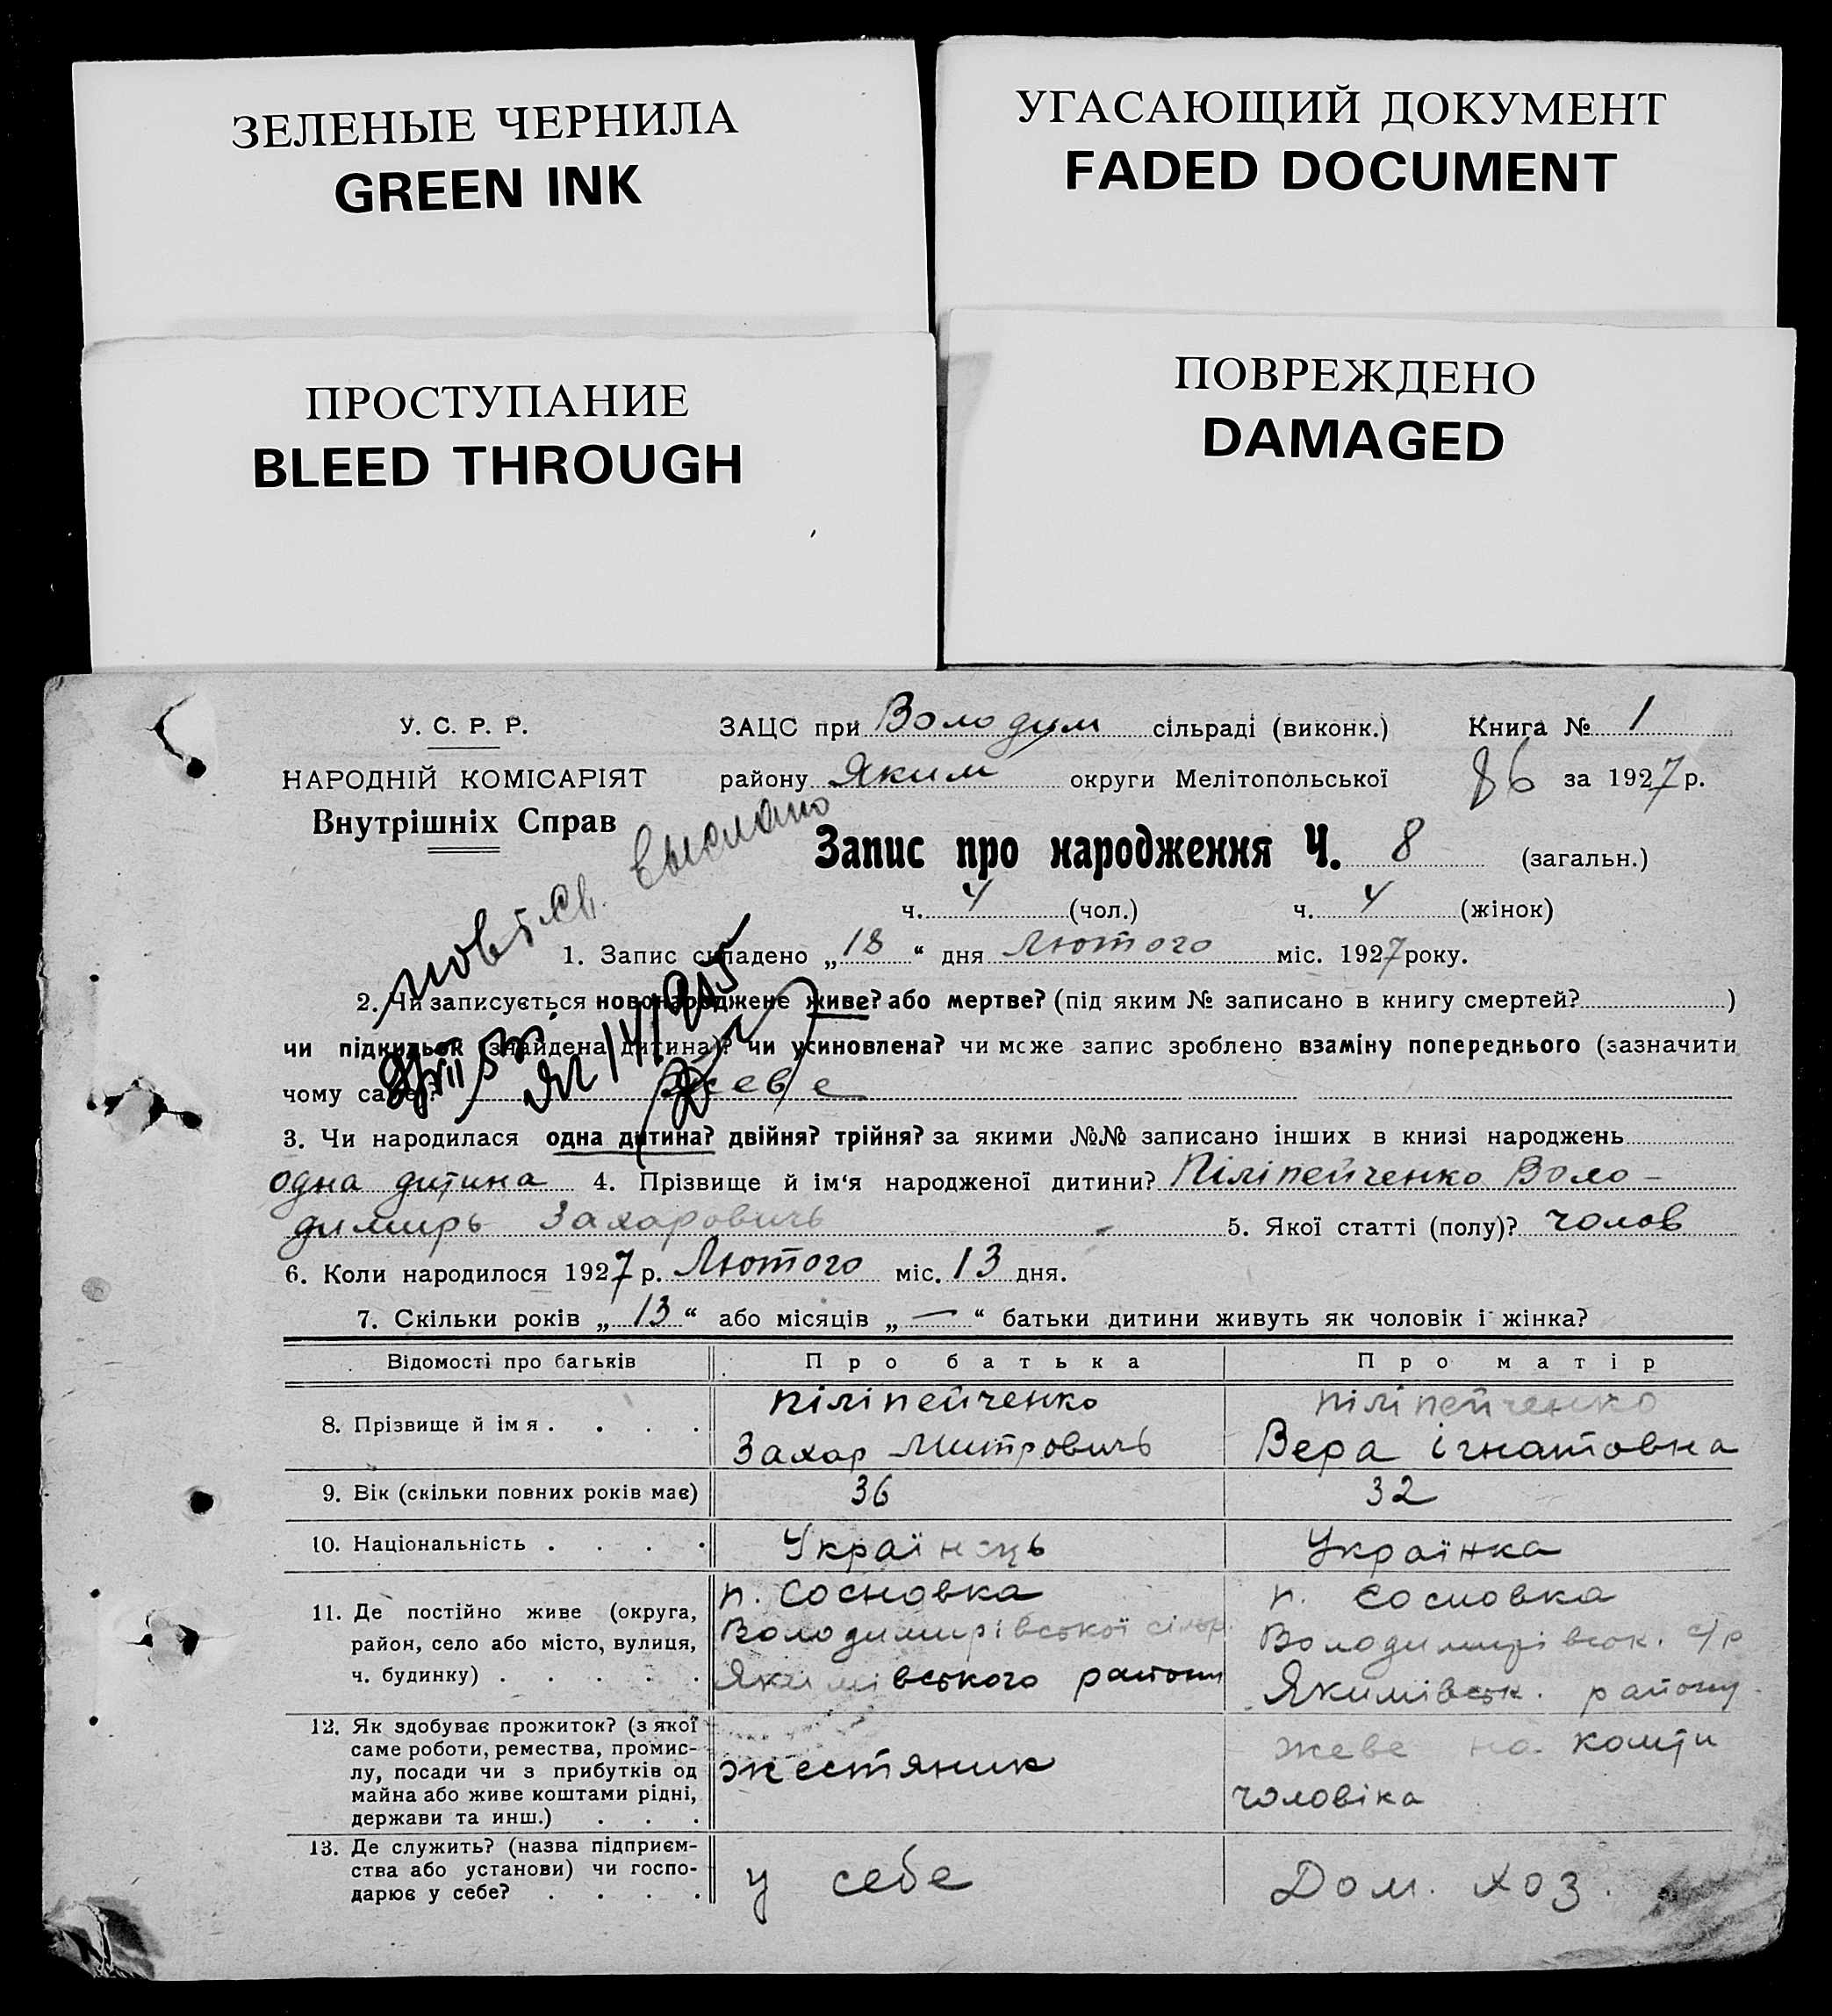 ЗЕЛЕНЫЕ ЧЕРНИЛА
GREEN INK
УГАСАЮЩИЙ ДОКУМЕНТ
FADED DOCUMENT
ПРОСТУПАНИЕ
BLEED THROUGH
ПОВРЕЖДЕНО
DAMAGED
У. С. Р. Р.
НАРОДНІЙ КОМІСАРІЯТ
Внутрішніх Справ
ЗАЦС при Володим сільраді (виконк.) Книга № 1
району Яким округи Мелітопольської 86 за 1927 р.
Запис про народження Ч. 8 (загальн.)
ч. 4 (чол.) ч. 4 (жінок)
выслано
1. Запис складено „18“ дня Лютого міс. 1927 року.
2. Чи записується новонароджене живе? або мертве? (під яким № записано в книгу смертей? )
чи підкидьок (знайдена дитина)? чи усиновлена? чи може запис зроблено взаміну попереднього (зазначити
чому саме)? жеве
3. Чи народилася одна дитина? двійня? трійня? за якими №№ записано інших в книзі народжень
одна дитина 4. Прізвище й ім‘я народженої дитини? Піліпейченко Воло-
димирь Захаровичь 5. Якої статті (полу)? чолов
6. Коли народилося 1927 р. Лютого міс. 13 дня.
7. Скільки років „13“ або місяців „—“ батьки дитини живуть як чоловік і жінка?
Відомості про батьків Про батька Про матір
8. Прізвище й ім я . . . . Піліпейченко Захар Митровичь Піліпейченко Вера ігнатовна
9. Вік (скільки повних років має) 36 32
10. Національність . . . . Українець Українка
11. Де постійно живе (округа, п. Сосновка п. Сосновка
район, село або місто, вулиця, Володимирівської сільр. Володимирівськ. с/р
ч. будинку) . . . . . Якимівського району Якимівськ. району
12. Як здобуває прожиток? (з якої
саме роботи, ремества, промис- жеве на кошти
лу, посади чи з прибутків од жестяник
майна або живе коштами рідні, чоловіка
держави та инш.) . . .
13. Де служить? (назва підприєм-
ства або установи) чи госпо- у себе Дом. хоз.
дарює у себе? . . . .